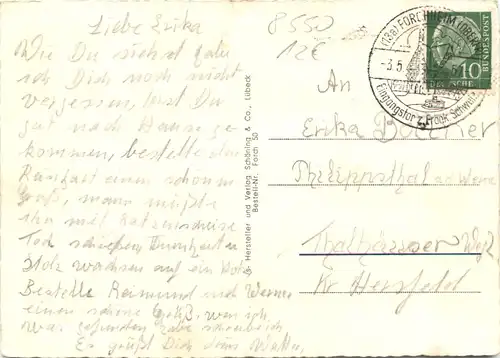 Liebe Erika
Wie Du siehst habe
ich Dich noch nicht
vergessen, bist Du
gut nach Hause ge
kommen, bestelle
einen schönen
Gruß, man müßte
ihn mit Katzenscheise
Tod schießen Dummheit
Stolz wachsen auf ein Holz
Bestelle Reimund und Werner
einen schöne Grüß, wen ich
was gefunden habe schreibe ich
Es grüßt Dich dein
8550
12€
Hersteller und Verlag Schöning & Co., Lübeck
Bestell-Nr. Forch 50
(13a) FORCHHEIM
-3.5.
Eingangstor z. Fränk. Schweiz
DEUTSCHE BUNDESPOST
10
An
Erika
Philippsthal a d Werra
Thalhäuser Weg 2
Kr Hersfeld